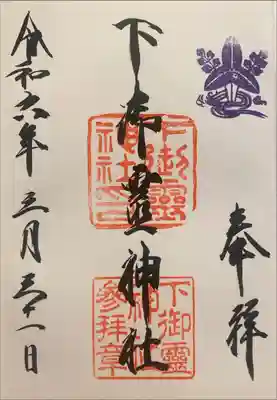 奉拝
下御靈神社
下御靈
神社印
下御靈
神社
参拝章
令和六年三月三十一日